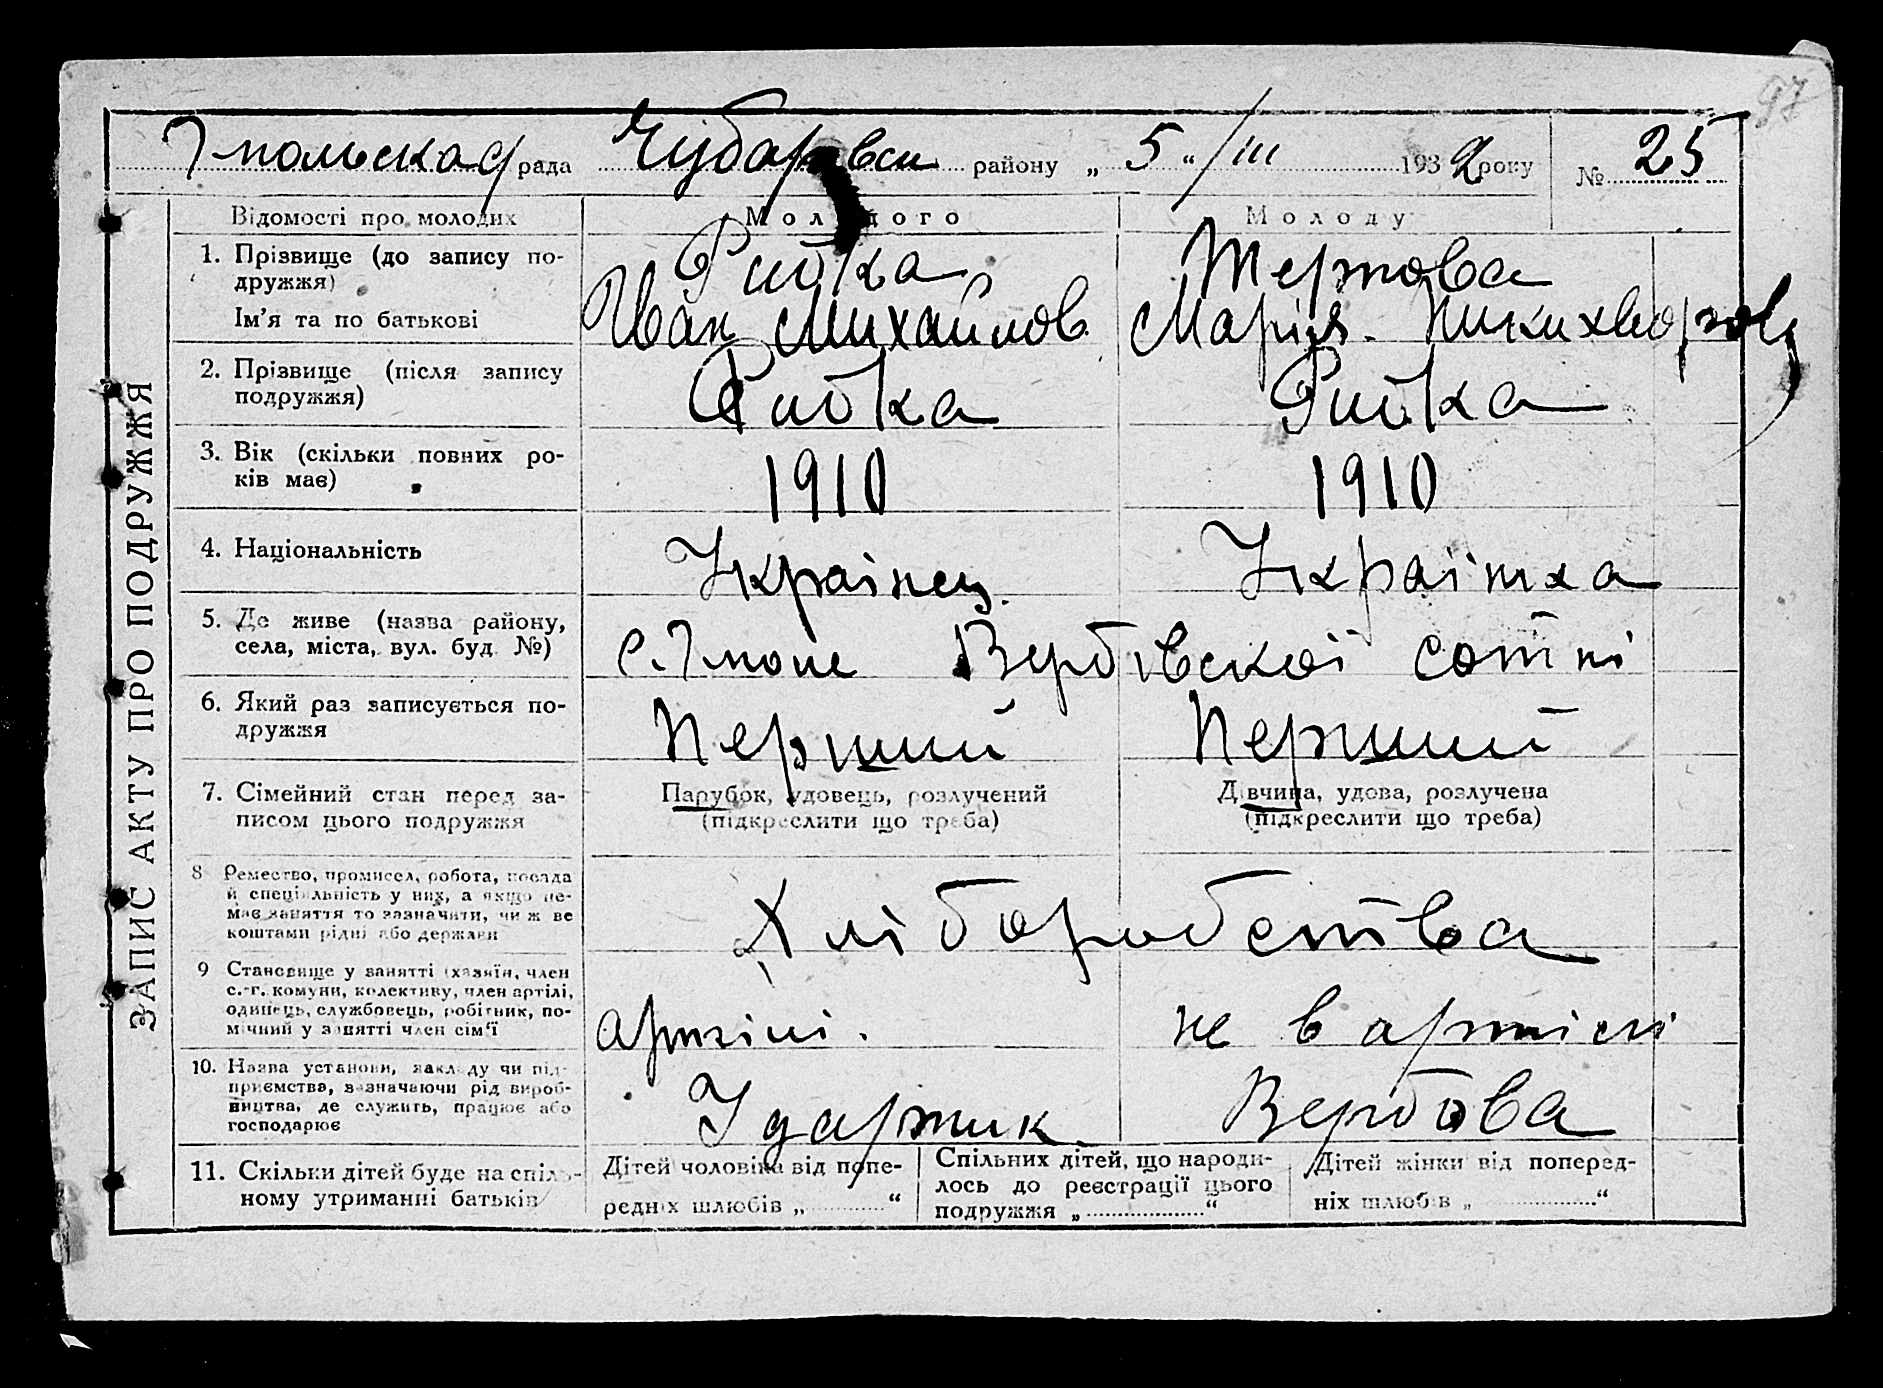 97
Гпольская рада Чубаровск району „ 5 “ /III 1932 року № 25
ЗАПИС АКТУ ПРО ПОДРУЖЖЯ
Відомості про молодих Молодого Молоду
1. Прізвище (до запису по-
дружжя)
Рибка Тертова
Ім’я та по батькові
Іван Михайлов Марія Никихворов
2. Прізвище (після запису
подружжя)
Рибка Рибка
3. Вік (скільки повних ро-
ків має)
1910 1910
4. Національність
Українец. Українка
5. Де живе (назва району,
села, міста, вул. буд. №)
с. Гполе Вербівскої сотні
6. Який раз записується по-
дружжя
Перший Перший
7. Сімейний стан перед за-
писом цього подружжя
Парубок, удовець, розлучений Дівчина, удова, розлучена
(підкреслити що треба) (підкреслити що треба)
8 Ремество, промисел, робота, посада
й спеціяльність у них, а якщо не-
має заняття то зазначити, чи ж ве
коштами рідні або держави
Хліборобства
9 Становище у занятті (хазяїн, член
с.-г. комуни, колективу, член артілі,
одинець, службовець, робітник, по-
мічний у занятті член сім’ї
артілі. не в артілі
10. Назва установи, закладу чи під-
приємства, зазначаючи рід вироб-
ництва, де служить, працює або
господарює
Ударник Вербова
11. Скільки дітей буде на спіль-
ному утриманні батьків
Дітей чоловіка від попе-
редніх шлюбів „ “
Спільних дітей, що народи-
лось до реєстрації цього
подружжя „ “
Дітей жінки від поперед-
ніх шлюбів „ “